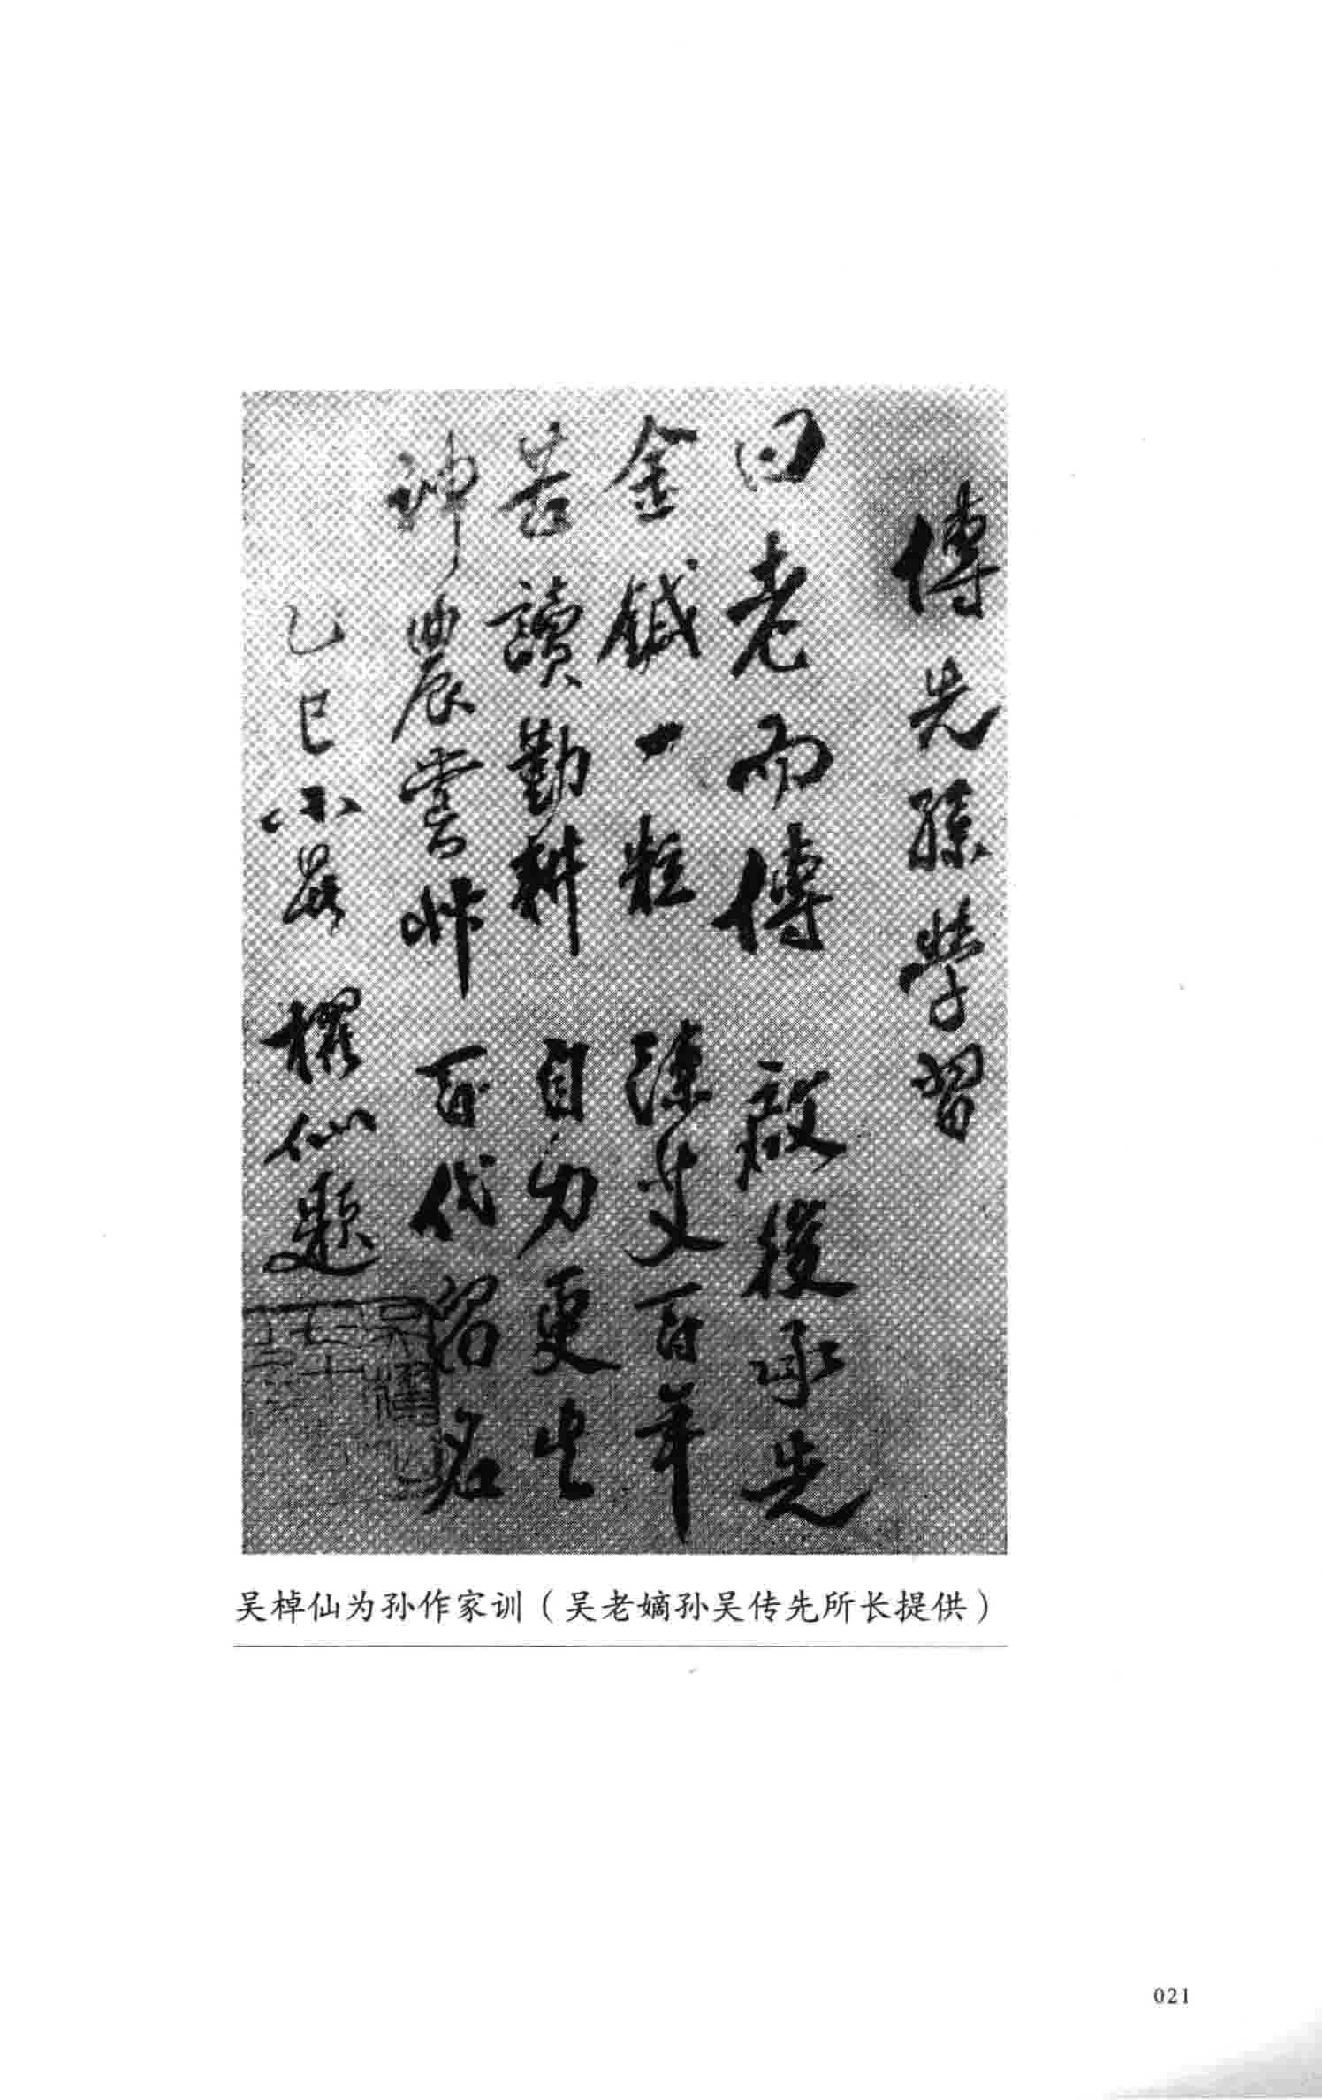 傳先孫學習
曰老而傳 啟後承先
金鍼一粒 陳艾百年
苦讀勤耕 自力更生
神農嘗艸 百代留名
乙巳小暑 櫂仙題
吴棹仙为孙作家训（吴老嫡孙吴传先所长提供）
021